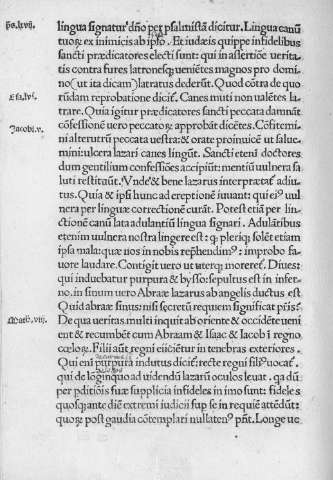 lingua signatur' dño per psalmistā dicitur. Lingua canū
ps. lxvij.
tuoꝝ ex inimicis ab ipso. Et iudæis quippe infidelibus
sancti prædicatores electi sunt: qui in assertiōe uerita-
tis contra fures latronesq; ueniētes magnos pro domi-
no (ut ita dicam) latratus dederūt. Quod cōtra de quo
Esa. lvi.
rūdam reprobatione dicit'. Canes muti non ualētes la-
trare. Quia igitur prædicatores sancti peccata damnāt
Jacobi. v.
cōfessionē uero peccatoꝝ approbāt dicētes. Cōfitemi-
ni alterutrū peccata uestra: & orate proinuicē ut salue-
mini: ulcera lazari canes lingūt. Sancti etenī doctores
dum gentilium confessiōes accipiūt: mentiū uulnera sa-
luti restituūt. Vnde & bene lazarus interpretat' adiu-
tus. Quia & ipsi hunc ad ereptionē iuuant: qui ei' uul-
nera per linguæ correctionē curāt. Potest etiā per lin-
ctionē canū lata adulantiū lingua signari. Adulātibus
etenim uulnera nostra lingere est: q plerūq; solēt etiam
ipsa mala: quæ nos in nobis reprhendim': improbo fa-
uore laudare. Contigit uero ut uterq; moreret'. Diues:
qui induebatur purpura & bysso: sepultus est in infer-
no. in sinum uero Abraæ lazarus ab angelis ductus est
Quid abraæ sinus: nisi secretū requiem significat pr̄is?
Math. viij.
De qua ueritas. multi inquit ab oriente & occidēte ueni
ent & recumbēt cum Abraam & Isaac & Iacob ī regno
cœloꝝ. Filii aūt regni eiiciētur in tenebras exteriores.
Qui enī purpura indutus dicit': recte regni fili' uocat'.
qui de lōginquo ad uidendū lazarū oculos leuat. qa dū
per pditiōis suæ supplicia infideles in imo sunt: fideles
quosq; ante diē extremi iudicii sup se in requie attēdūt:
quoꝝ post gaudia cōtemplari nullaten' pñt. Longe ue